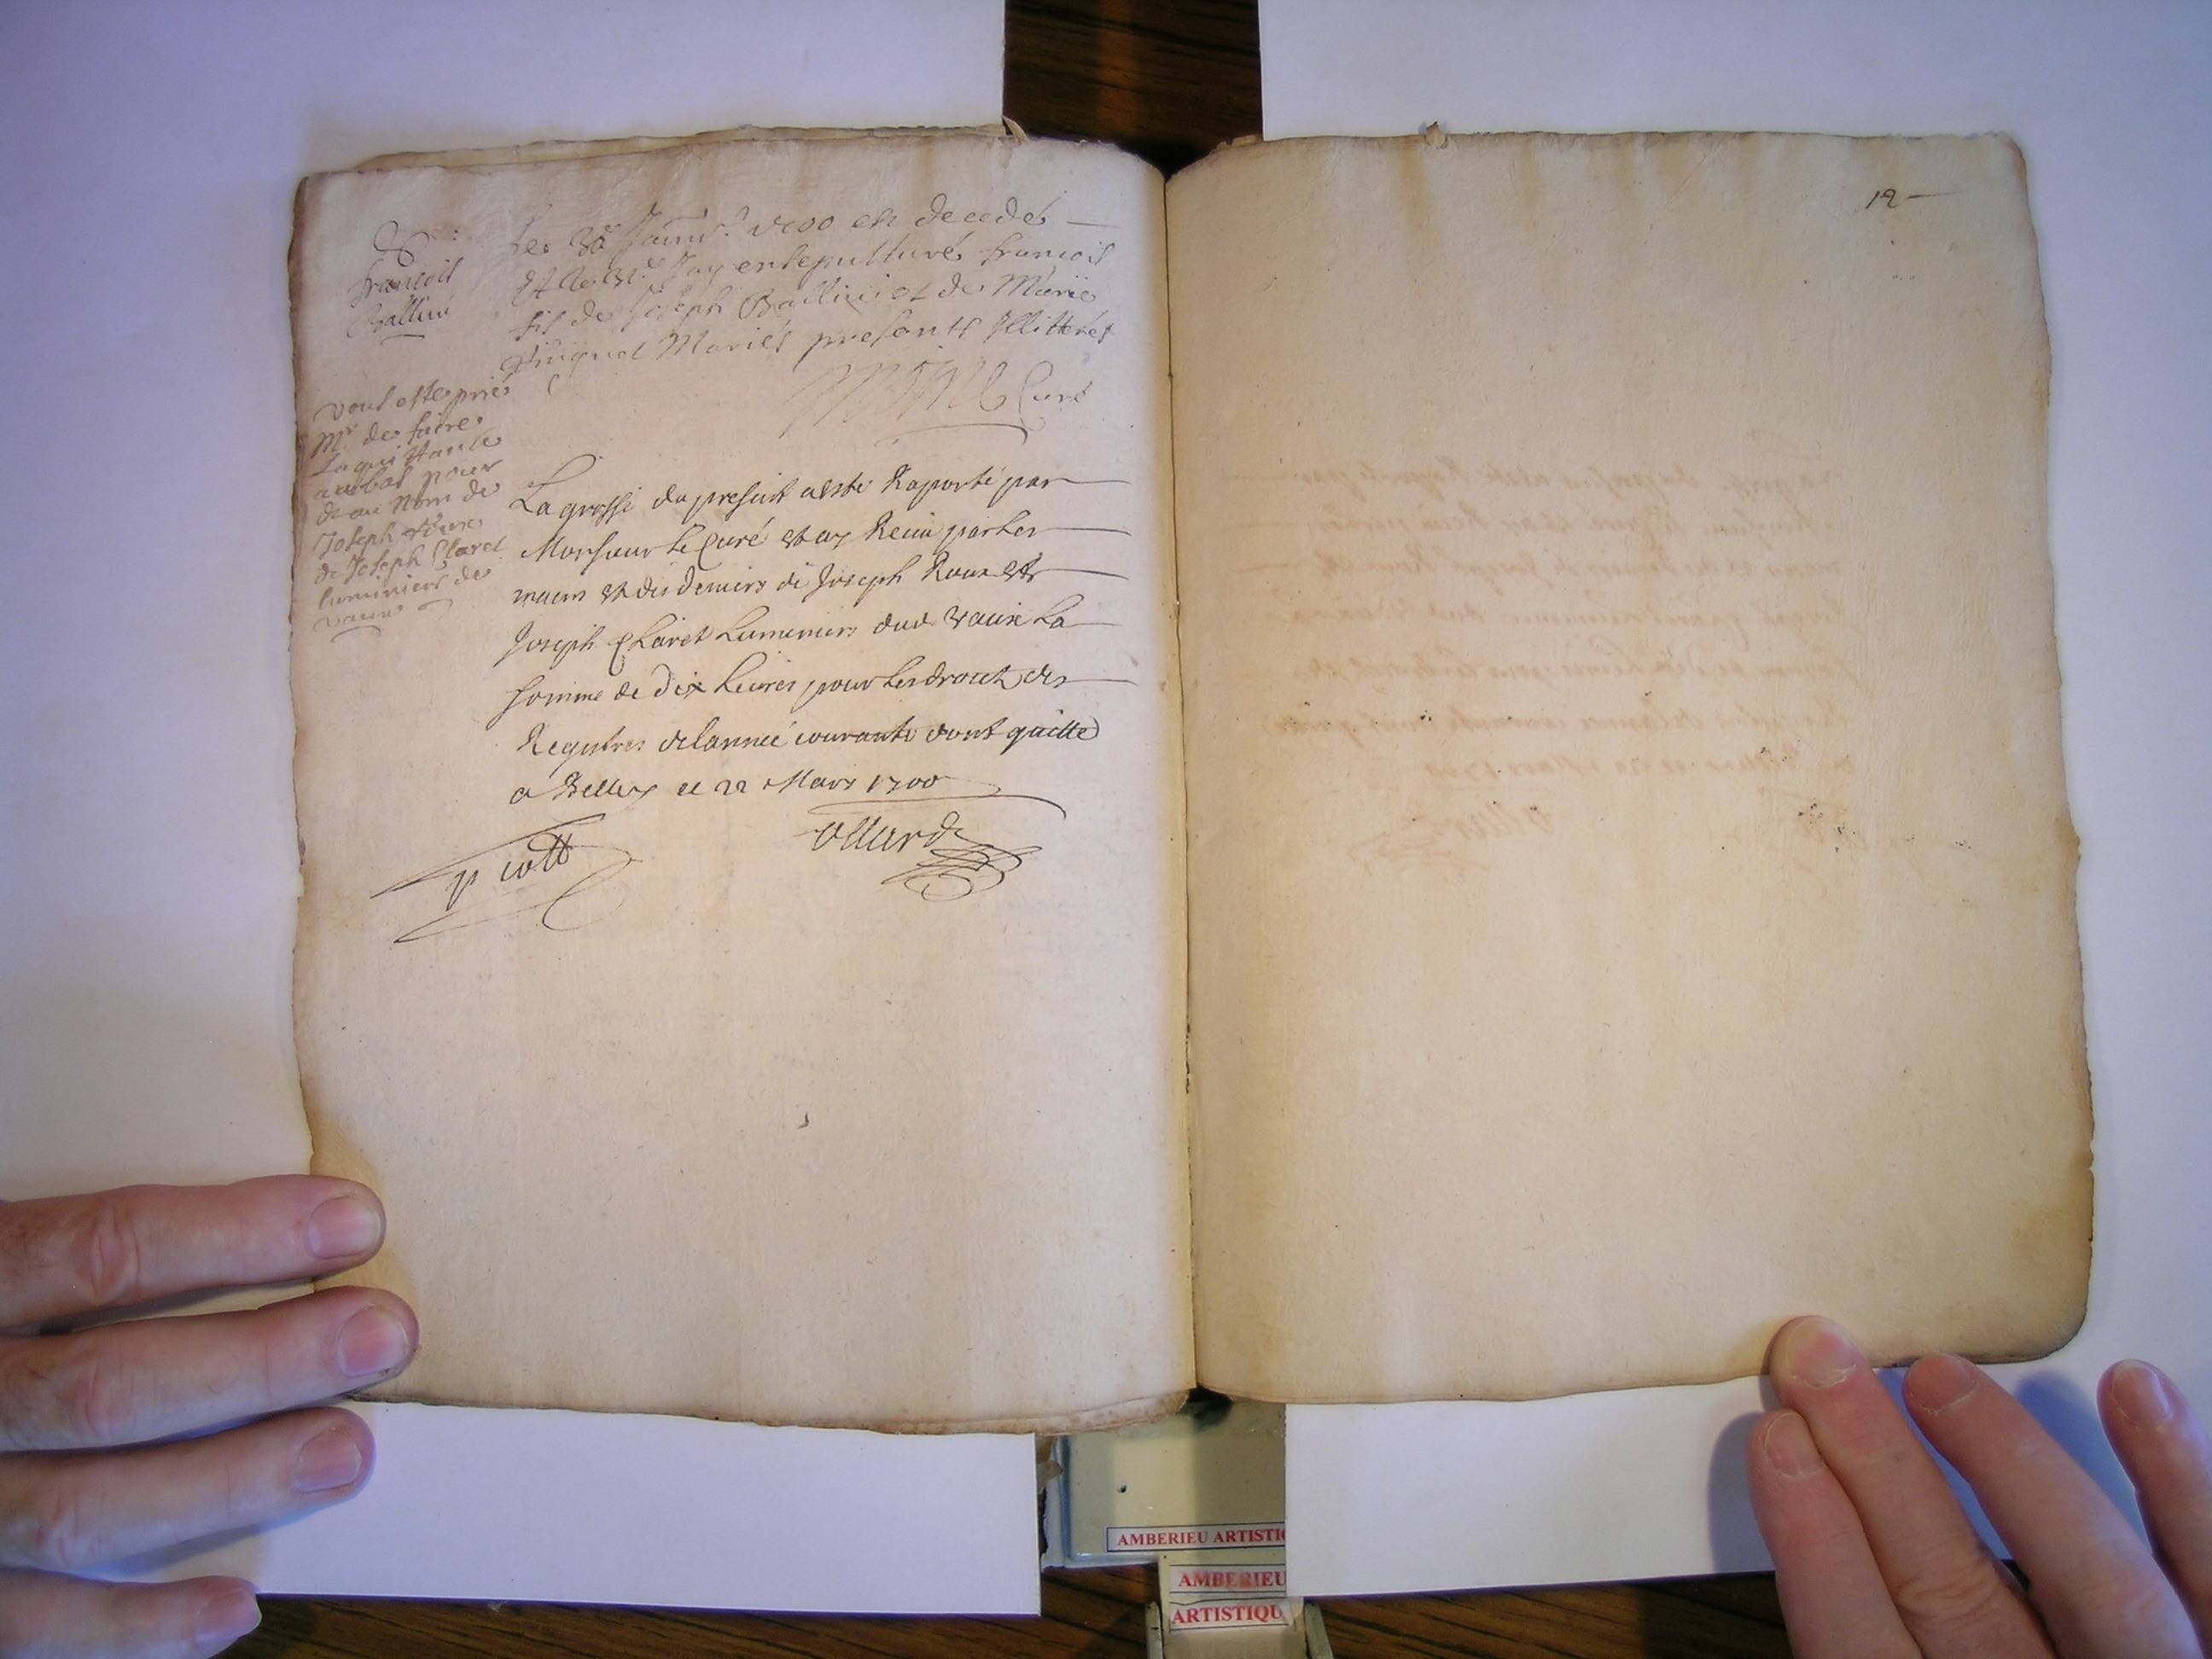 françois
Ballini
Le 30e Janvr. 1700 est decedé
Et le 31e Jay ensepulturé françois
fils de Joseph Ballini et de Marie
Mariés presents Illitterés
Curé
vous estes prié
Mr de faire
la quittance
au bas pour
& au nom de
Joseph Roux
& Joseph Claret
luminiers de
vaux
La grosse du present a esté Raporté par
Monsieur le Curé et ay Receu par les
mains et des deniers de Joseph Roux et
Joseph Claret Luminiers dud vaux La
somme de dix Livres pour les droits des
Registres de lannée courante dont quitte
a Belley ce 22 Mars 1700
ollard
12
AMBERIEU ARTISTI
AMBERIEU
ARTISTIQU